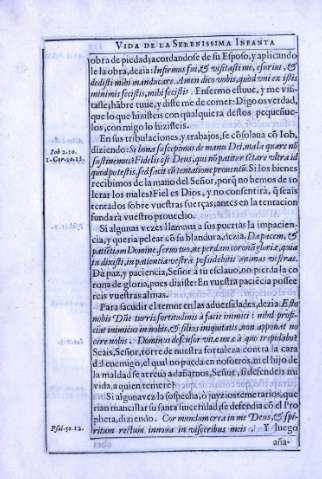 VIDA DE LA SERENISSIMA INFANTA
obra de piedad; acordandose de su Esposo, y aplicando
le la obra, dezia: Infirmus fui, & visitasti me, esurivi, &
dedisti mihi manducare. Amen dico vobis, quod uni ex istis
minimis fecistis, mihi fecistis. Enfermo estuve, y me visi-
taste; hâbre tuve, y diste me de comer: Digo os verdad,
que lo que hizisteis con qualquiera destos pequeñue-
los, conmigo lo hizisteis.
En sus tribulaciones, y trabajos, se cõsolaua cõ Iob,
Iob 2.10.
diziendo: Si bona suscepimus de manu Dei, mala quare nõ
1.Cor.10.13.
sustinemus? Fidelis est Deus, qui nõ patitur tētare ultra id
quod potestis, sed facit cũ tentatione prouentũ. Si los bienes
recibimos de la mano del Señor, porq̃ no hemos de to
lerar los males? Fiel es Dios, y no consentirâ, q̃ seais
tentados sobre vuestras fuerças; antes en la tentacion
fundarà vuestro prouecho.
Si algunas vezes llamaua a sus puertas la impacien-
cia, y queria pelear cõ su blandura, dezia. Da pacem, &
patientiam Domine, seruo tuo, ne perdam coronã gloriæ, quia
tu dixisti, in patientia vestra possidebitis animas vestras.
Dà paz, y paciencia, Señor a tu esclauo, no pierda la co
rona de gloria, pues dixiste: En vuestra paciēcia possee
reis vuestras almas.
Para sacudir el temor en las aduersidades, dezia: Esto
nobis Dñe turris fortitudinis à facie inimici: nihil profi-
ciat inimicus in nobis, & filius iniquitatis non apponat no
cere nobis. Dominus defensor vitæ meæ à quo trepidabo?
Seais, Señor, torre de nuestra fortaleza contra la cara
del enemigo, el qual no pueda en nosotros, ni el hijo de
la maldad se atreua a dañarnos, Señor, si defendeis mi
vida, a quien temerè?
Si alguna vez la sospecha, ò juyzios temerarios, que
rian mancillar su santa sinceridad, se defendia cõ el Pro
pheta, diziendo. Cor mundum crea in me Deus, & spi-
Psal.50.12.
ritum rectum innoua in visceribus meis. Y luego
aña-